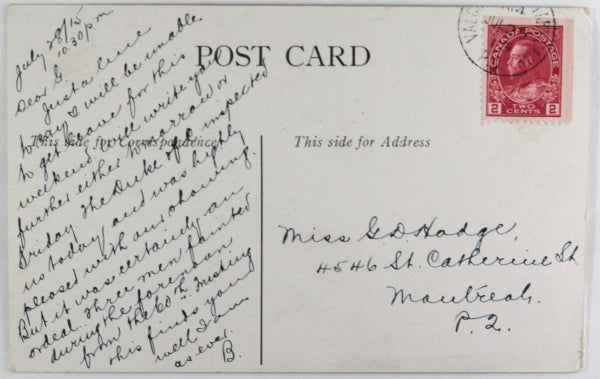 July 28/15
10.30 pm
Dear G.
Just a line
to say I will be unable
to get leave for this
weekend, will write you
further either tomorrow or
Friday. The Duke of C inspected
us today and was highly
pleased with our showing.
But it was certainly an
ordeal. Three men fainted
during the forenoon
from the 60th. Trusting
this finds you
well I am
as ever.
B.
POST CARD
This side for Correspondence
This side for Address
CANADA POSTAGE
2 2
TWO CENTS
VALCARTIER
JUL
Miss G. D. Hodge,
4546 St. Catherine St.
Montreal.
P.Q.